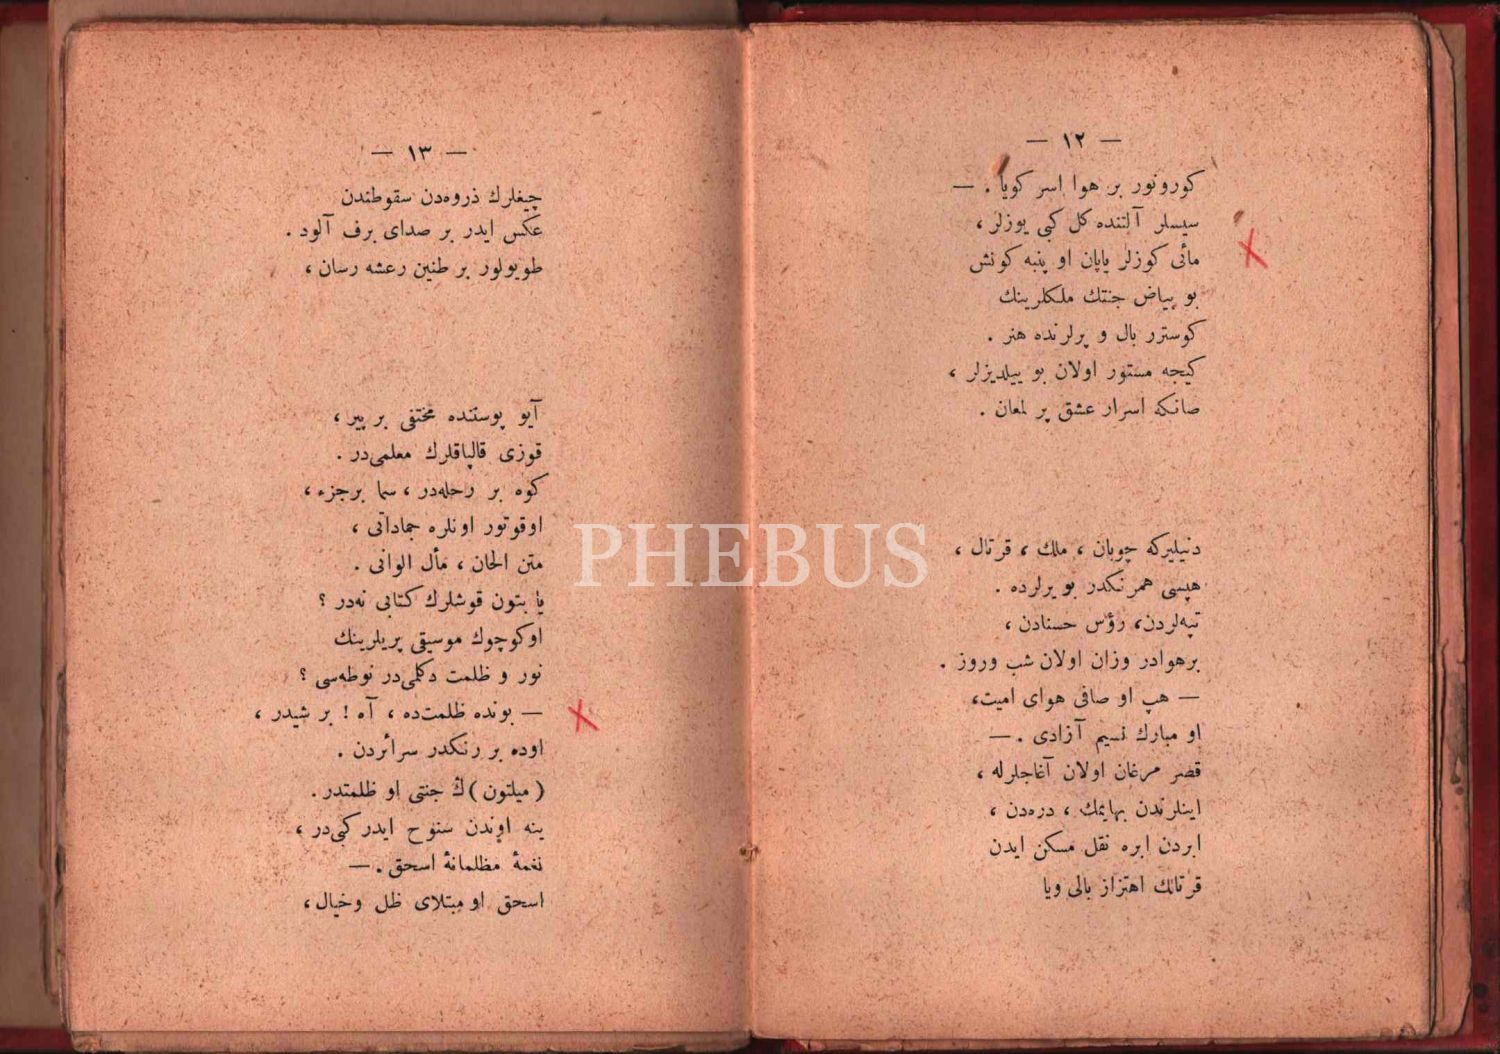 — ١٢ —
كورونور بر هوا اسر كويا . —
سيسلر آلتنده كل كبى يوزلر ،
مائى كوزلر ياپان او پنبه كونش
بو بياض جنتك ملكلرينك
كوسترر بال و پرلرنده هنر .
كيجه مستور اولان بو ييلديزلر ،
صانكه اسرار عشق پر لمعان .
دنيليركه چوبان ، ملك ، قرتال ،
هپسى همرنكدر بو يرلرده .
تپه‌لردن، رؤس حسنادن ،
برهوادر وزان اولان شب وروز .
— هپ او صافى هواى اميت،
او مبارك نسيم آزادى . —
قصر مرغان اولان آغاجلرله ،
اينلرندن بهايمك ، دره‌دن ،
ابردن ابره نقل مسكن ايدن
قرتالك اهتزاز بالى ويا
— ١٣ —
چيغلرك ذروه‌دن سقوطندن
عكس ايدر بر صداى برف آلود .
طويولور بر طنين رعشه رسان ،
آيو پوستنده مختفى بر پير ،
قوزى قالپاقلرك معلمى‌در .
كوه بر رحله‌در ، سما برجزء ،
اوقوتور اونلره جماداتى ،
متن الحان ، مأل الوانى .
يا بتون قوشلرك كتابى نه‌در ؟
اوكوچوك موسيقى پريلرينك
نور و ظلمت دكلمى‌در نوطه‌سى ؟
— بونده ظلمت‌ده ، آه ! بر شيدر ،
اوده بر رنكدر سرائردن .
( ميلتون )ڭ جنتى او ظلمتدر.
ينه اوندن سنوح ايدر كبى‌در ،
نغمهٔ مظلمانهٔ اسحق . —
اسحق او مبتلاى ظل وخيال ،
PHEBUS